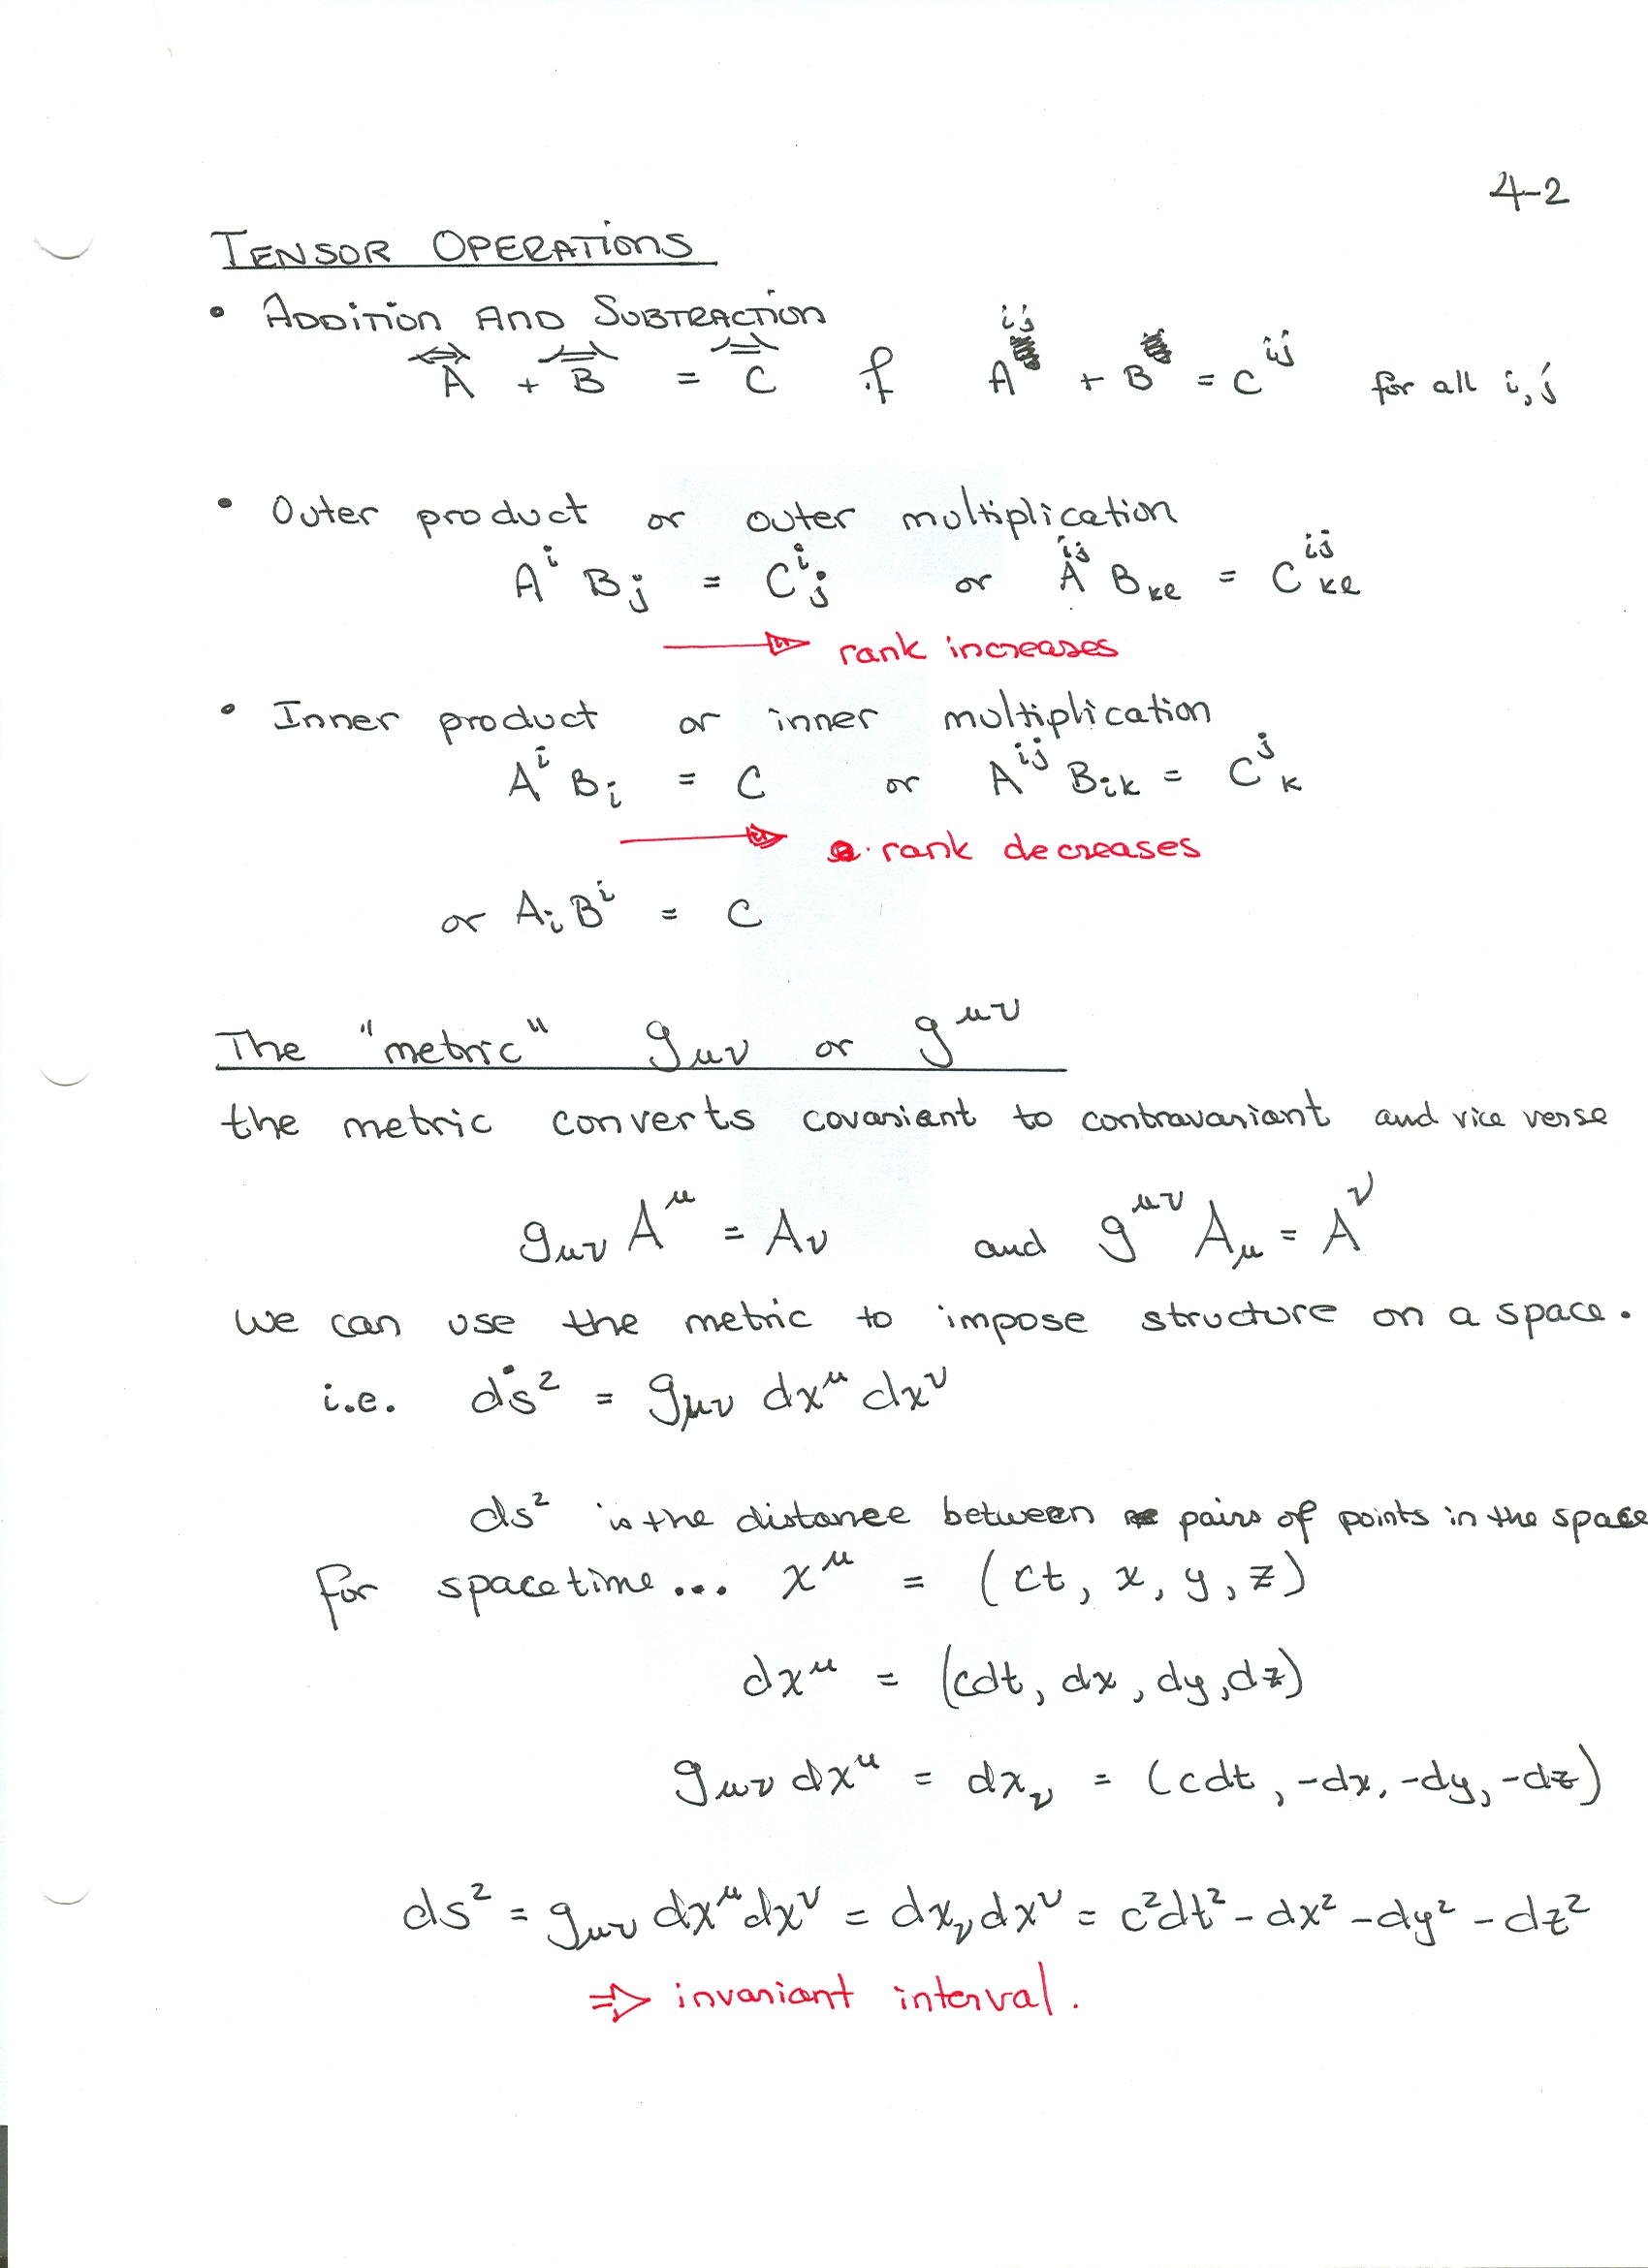 4-2
TENSOR OPERATIONS
• ADDITION AND SUBTRACTION
A + B = C if A^{ij} + B = C^{ij} for all i, j
• Outer product or outer multiplication
A^i B_j = C^i_j or A^{ij} B_{kl} = C^{ij}_{kl}
→ rank increases
• Inner product or inner multiplication
A^i B_i = C or A^{ij} B_{ik} = C^j_k
→ rank decreases
or A_i B^i = C
The "metric" g_{μν} or g^{μν}
the metric converts covariant to contravariant and vice verse
g_{μν} A^μ = A_ν and g^{μν} A_μ = A^ν
we can use the metric to impose structure on a space.
i.e. ds² = g_{μν} dx^μ dx^ν
ds² is the distance between pairs of points in the space
for spacetime... x^μ = (ct, x, y, z)
dx^μ = (cdt, dx, dy, dz)
g_{μν} dx^μ = dx_ν = (cdt, -dx, -dy, -dz)
ds² = g_{μν} dx^μ dx^ν = dx_ν dx^ν = c²dt² - dx² - dy² - dz²
⇒ invariant interval.